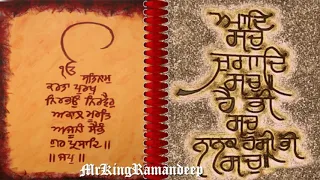 ੴ
ਸਤਿਨਾਮੁ
ਕਰਤਾ ਪੁਰਖੁ
ਨਿਰਭਉ ਨਿਰਵੈਰੁ
ਅਕਾਲ ਮੂਰਤਿ
ਅਜੂਨੀ ਸੈਭੰ
ਗੁਰ ਪ੍ਰਸਾਦਿ
॥ ਜਪੁ ॥
ਆਦਿ
ਸਚੁ
ਜੁਗਾਦਿ
ਸਚੁ ॥
ਹੈ ਭੀ
ਸਚੁ
ਨਾਨਕ ਹੋਸੀ ਭੀ
ਸਚੁ ॥
MrKingRamandeep